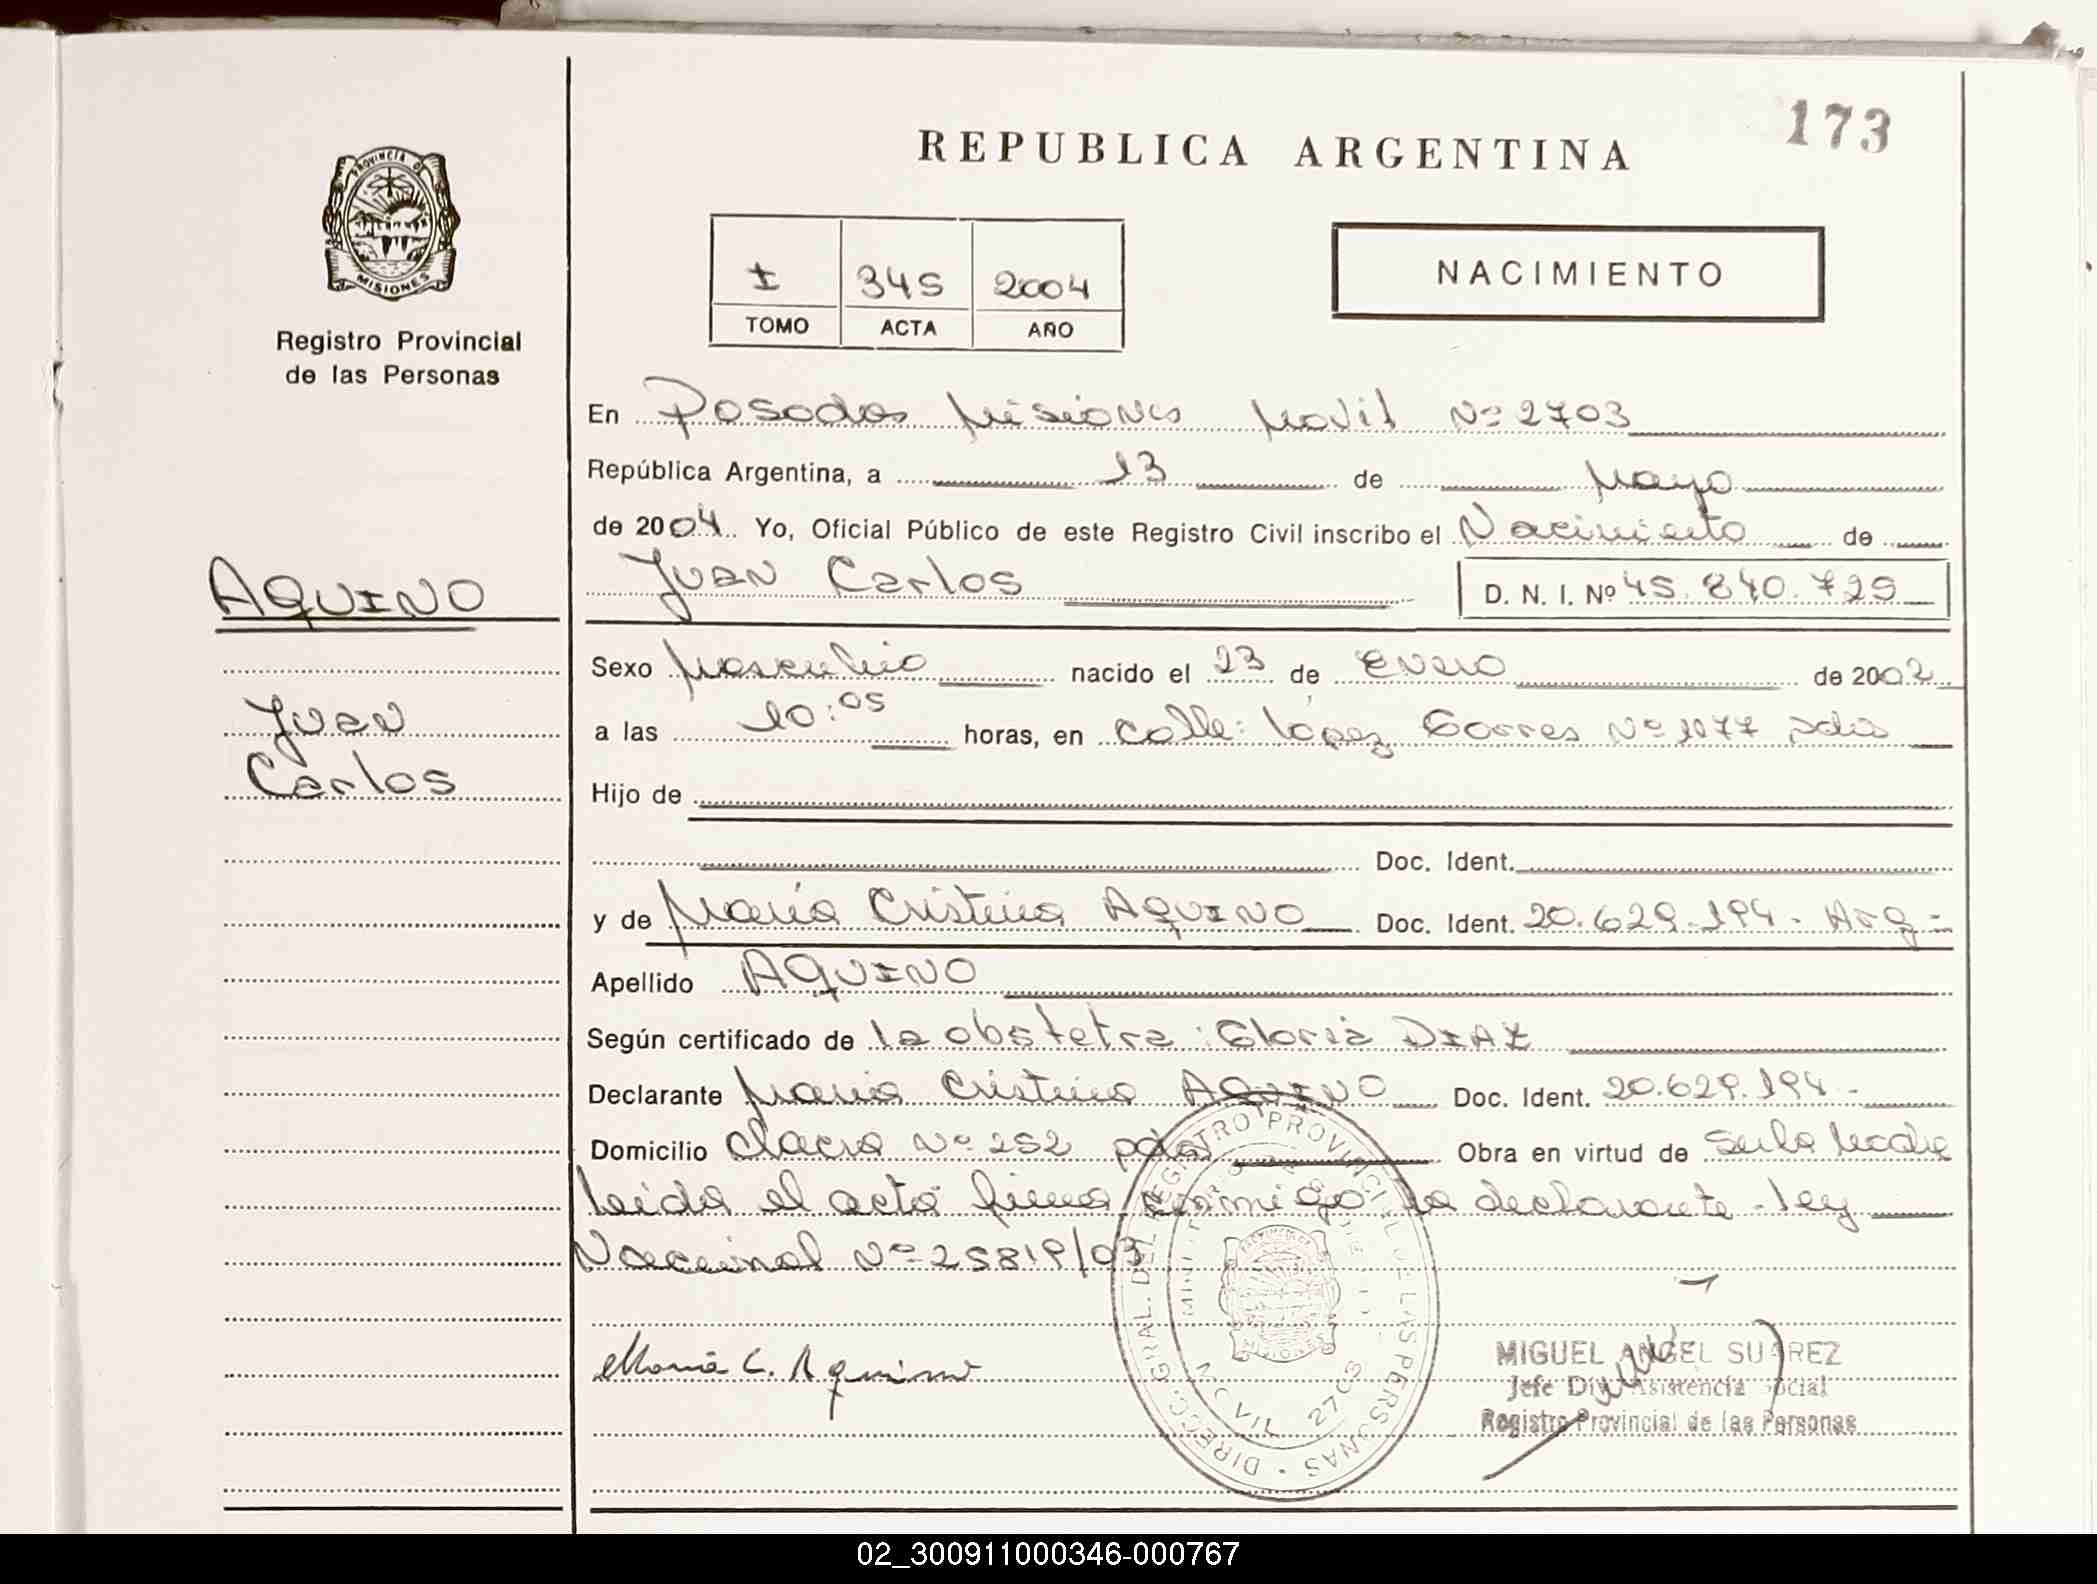 173
REPUBLICA ARGENTINA
PROVINCIA DE MISIONES
Registro Provincial
de las Personas
I 345 2004
TOMO ACTA AÑO
NACIMIENTO
En Posadas Misiones Movil Nº 2703
República Argentina, a 13 de Mayo
de 2004 Yo, Oficial Público de este Registro Civil inscribo el Nacimiento de
Juan Carlos D. N. I. Nº 45.840.729
AQUINO
Juan
Carlos
Sexo Masculino nacido el 23 de Enero de 2002
a las 10:05 horas, en calle: López Torres Nº 1077 pdas
Hijo de
Doc. Ident.
y de María Cristina AQUINO Doc. Ident. 20.629.194 - Arg =
Apellido AQUINO
Según certificado de la obstetra: Gloria DIAZ
Declarante María Cristina AQUINO Doc. Ident. 20.629.194 -
Domicilio chacra Nº 252 pdas Obra en virtud de ser la madre
leida el acta firma conmigo la declarante - ley
Nacional Nº 25819/03
Maria C. Aquino
DIRECC. GRAL. DEL REGISTRO PROVINCIAL DE LAS PERSONAS
MOVIL 2703
MISIONES
MIGUEL ANGEL SUAREZ
Jefe Div. Asistencia Social
Registro Provincial de las Personas
02_300911000346-000767